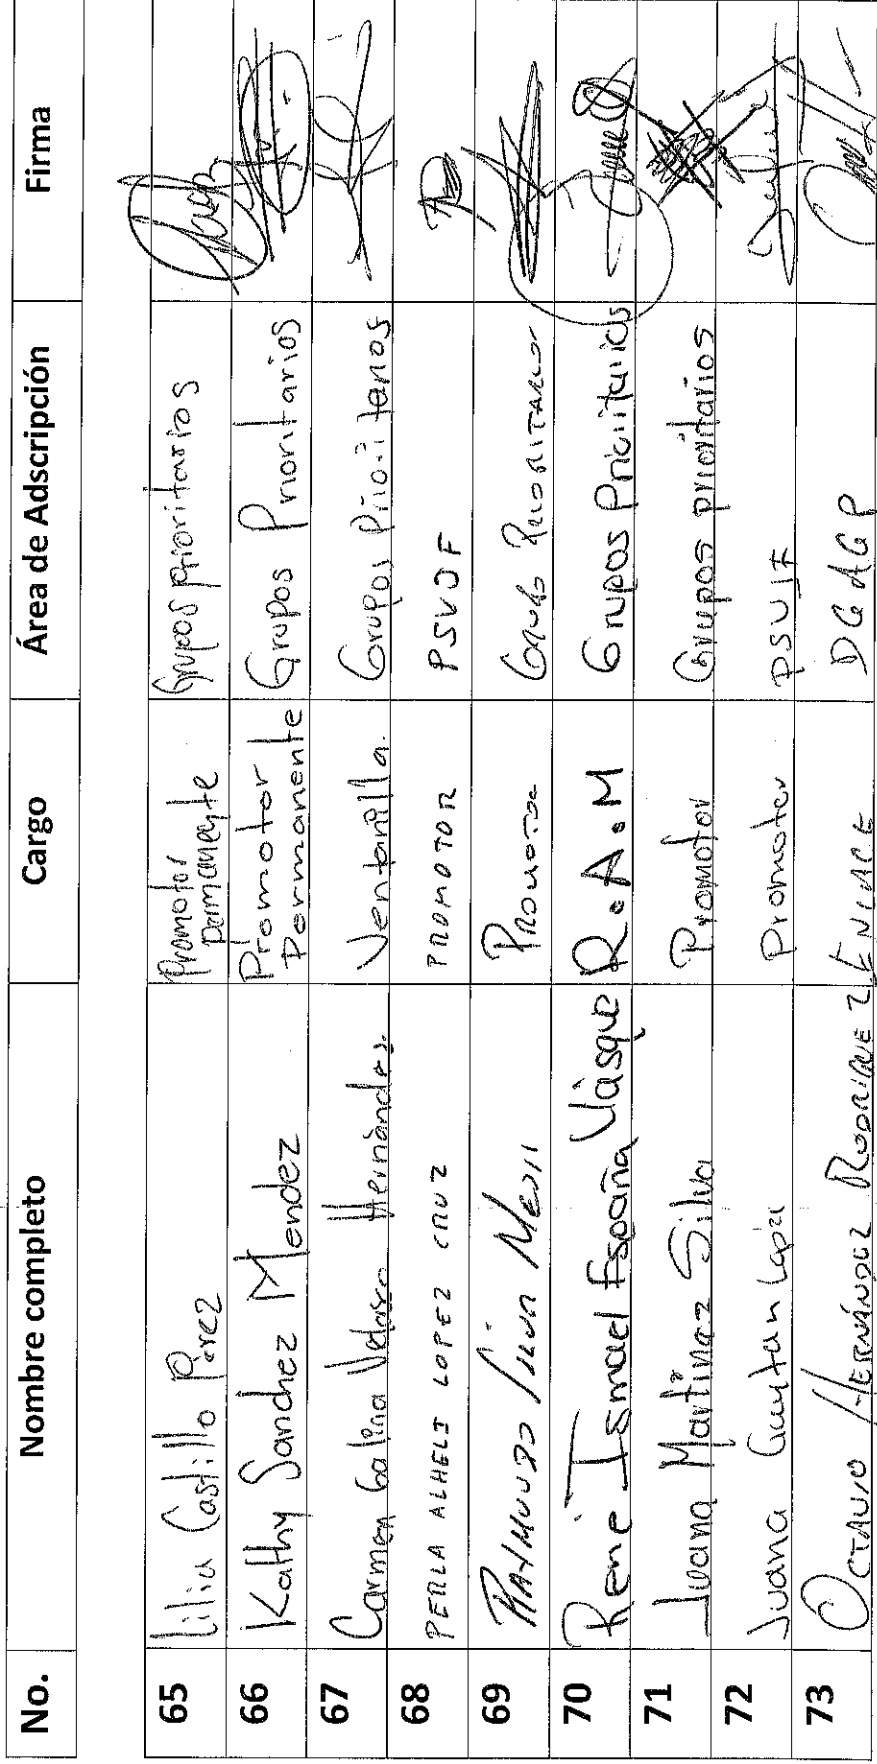 No. Nombre completo Cargo Área de Adscripción Firma
65 Lilia Castillo Pérez Promotor permanente Grupos prioritarios
66 Kathy Sanchez Mendez Promotor Permanente Grupos Prioritarios
67 Carmen Galina Velasco Hernández Ventanilla. Grupos Prioritarios
68 PERLA ALHELI LOPEZ CRUZ PROMOTOR PSVJF
69 RAYMUNDO Silva PROMOTOR Grupos PRIORITARIOS
70 René Ismael España Vásque R.A.M Grupos Prioritarios
71 Juana Martinez Silva Promotor Grupos prioritarios
72 Juana Guytan Lopez Promotor PSVJF
73 OCTAVIO HERNÁNDEZ RODRIGUEZ ENLACE DGAGP